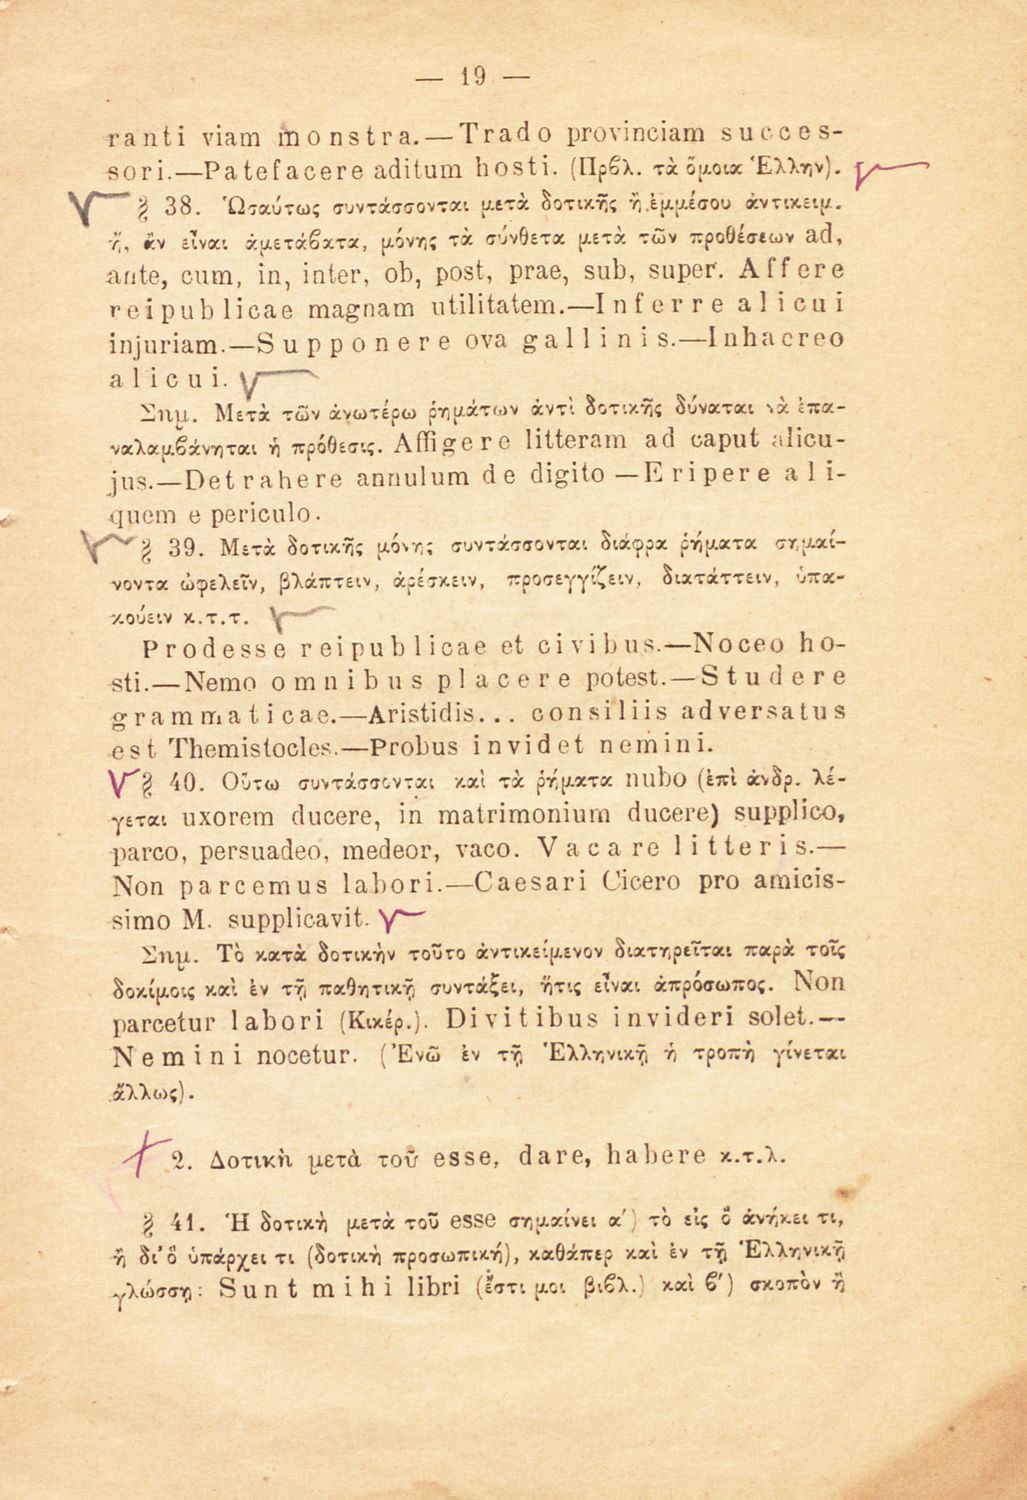 — 19 —
ranti viam monstra.—Trado provinciam succes-
sori.—Patefacere aditum hosti. (Πρβλ. τὰ ὅμοια Ἑλλην).
§ 38. Ὡσαύτως συντάσσονται μετὰ δοτικῆς ἢ ἐμμέσου ἀντικειμ.
ἤ, ἂν εἶναι ἀμετάβατα, μόνης τὰ σύνθετα μετὰ τῶν προθέσεων ad,
ante, cum, in, inter, ob, post, prae, sub, super. Affere
reipublicae magnam utilitatem.—Inferre alicui
injuriam.—Supponere ova gallinis.—Inhaereo
alicui.
Σημ. Μετὰ τῶν ἀνωτέρω ῥημάτων ἀντὶ δοτικῆς δύναται νὰ ἐπα-
ναλαμβάνηται ἡ πρόθεσις. Affigere litteram ad caput alicu-
jus.—Detrahere annulum de digito —Eripere ali-
quem e periculo.
§ 39. Μετὰ δοτικῆς μόνης συντάσσονται διάφρα ῥήματα σημαί-
νοντα ὠφελεῖν, βλάπτειν, ἀρέσκειν, προσεγγίζειν, διατάττειν, ὑπα-
κούειν κ.τ.τ.
Prodesse reipublicae et civibus.—Noceo ho-
sti.—Nemo omnibus placere potest.—Studere
grammaticae.—Aristidis... consiliis adversatus
est Themistocles.—Probus invidet nemini.
§ 40. Οὕτω συντάσσονται καὶ τὰ ῥήματα nubo (ἐπὶ ἀνδρ. λέ-
γεται uxorem ducere, in matrimonium ducere) supplico,
parco, persuadeo, medeor, vaco. Vacare litteris.—
Non parcemus labori.—Caesari Cicero pro amicis-
simo M. supplicavit.
Σημ. Τὸ κατὰ δοτικὴν τοῦτο ἀντικείμενον διατηρεῖται παρὰ τοῖς
δοκίμοις καὶ ἐν τῇ παθητικῇ συντάξει, ἥτις εἶναι ἀπρόσωπος. Non
parcetur labori (Κικέρ.). Divitibus invideri solet.—
Nemini nocetur. (Ἐνῶ ἐν τῇ Ἑλληνικῇ ἡ τροπὴ γίνεται
ἄλλως).
2. Δοτικὴ μετὰ τοῦ esse, dare, habere κ.τ.λ.
§ 41. Ἡ δοτικὴ μετὰ τοῦ esse σημαίνει α΄) τὸ εἰς ὃ ἀνήκει τι,
ἢ δι' ὃ ὑπάρχει τι (δοτικὴ προσωπική), καθάπερ καὶ ἐν τῇ Ἑλληνικῇ
γλώσσῃ: Sunt mihi libri (ἔστι μοι βιβλ.) καὶ β΄) σκοπὸν ἢ